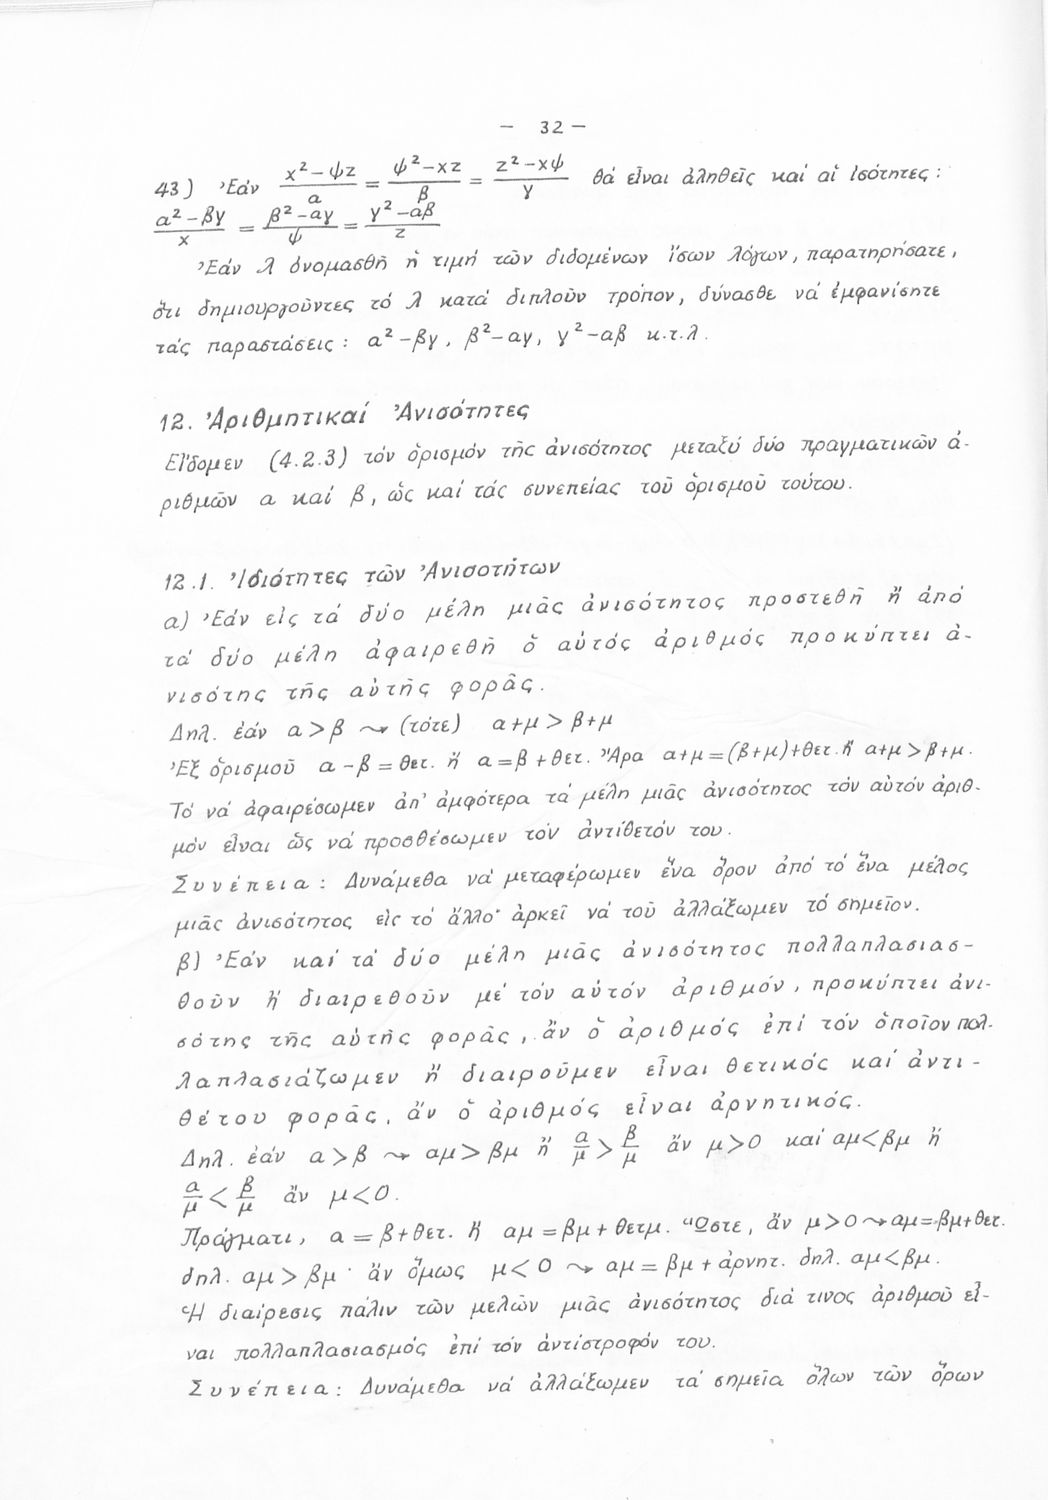 - 32 -
43) Ἐάν x²-ψz/α = ψ²-xz/β = z²-xψ/γ θά εἶναι ἀληθεῖς καί αἱ ἰσότητες:
α²-βγ/x = β²-αγ/ψ = γ²-αβ/z
Ἐάν λ ὀνομασθῇ ἡ τιμή τῶν διδομένων ἴσων λόγων, παρατηρήσατε,
ὅτι δημιουργοῦντες τό λ κατά διπλοῦν τρόπον, δύνασθε νά ἐμφανίσητε
τάς παραστάσεις: α²-βγ, β²-αγ, γ²-αβ κ.τ.λ.
12. Ἀριθμητικαί Ἀνισότητες
Εἴδομεν (4.2.3) τόν ὁρισμόν τῆς ἀνισότητος μεταξύ δύο πραγματικῶν ἀ-
ριθμῶν α καί β, ὡς καί τάς συνεπείας τοῦ ὁρισμοῦ τούτου.
12.1. Ἰδιότητες τῶν Ἀνισοτήτων
α) Ἐάν εἰς τά δύο μέλη μιᾶς ἀνισότητος προστεθῇ ἤ ἀπό
τά δύο μέλη ἀφαιρεθῇ ὁ αὐτός ἀριθμός προκύπτει ἀ-
νισότης τῆς αὐτῆς φορᾶς.
Δηλ. ἐάν α>β ⤳ (τότε) α+μ > β+μ
Ἐξ ὁρισμοῦ α-β = θετ. ἤ α=β+θετ. Ἄρα α+μ=(β+μ)+θετ. ἤ α+μ>β+μ.
Τό νά ἀφαιρέσωμεν ἀπ' ἀμφότερα τά μέλη μιᾶς ἀνισότητος τόν αὐτόν ἀριθ-
μόν εἶναι ὡς νά προσθέσωμεν τόν ἀντίθετόν του.
Συνέπεια: Δυνάμεθα νά μεταφέρωμεν ἕνα ὅρον ἀπό τό ἕνα μέλος
μιᾶς ἀνισότητος εἰς τό ἄλλο· ἀρκεῖ νά τοῦ ἀλλάξωμεν τό σημεῖον.
β) Ἐάν καί τά δύο μέλη μιᾶς ἀνισότητος πολλαπλασιασ-
θοῦν ἤ διαιρεθοῦν μέ τόν αὐτόν ἀριθμόν, προκύπτει ἀνι-
σότης τῆς αὐτῆς φορᾶς, ἄν ὁ ἀριθμός ἐπί τόν ὁποῖον πολ-
λαπλασιάζωμεν ἤ διαιροῦμεν εἶναι θετικός καί ἀντι-
θέτου φορᾶς, ἄν ὁ ἀριθμός εἶναι ἀρνητικός.
Δηλ. ἐάν α>β ⤳ αμ>βμ ἤ α/μ > β/μ ἄν μ>0 καί αμ<βμ ἤ
α/μ < β/μ ἄν μ<0.
Πράγματι, α = β+θετ. ἤ αμ = βμ + θετμ. Ὥστε, ἄν μ>0 ⤳ αμ=βμ+θετ.
δηλ. αμ>βμ· ἄν ὅμως μ<0 ⤳ αμ = βμ + ἀρνητ. δηλ. αμ<βμ.
Ἡ διαίρεσις πάλιν τῶν μελῶν μιᾶς ἀνισότητος διά τινος ἀριθμοῦ εἶ-
ναι πολλαπλασιασμός ἐπί τόν ἀντίστροφόν του.
Συνέπεια: Δυνάμεθα νά ἀλλάξωμεν τά σημεῖα ὅλων τῶν ὅρων